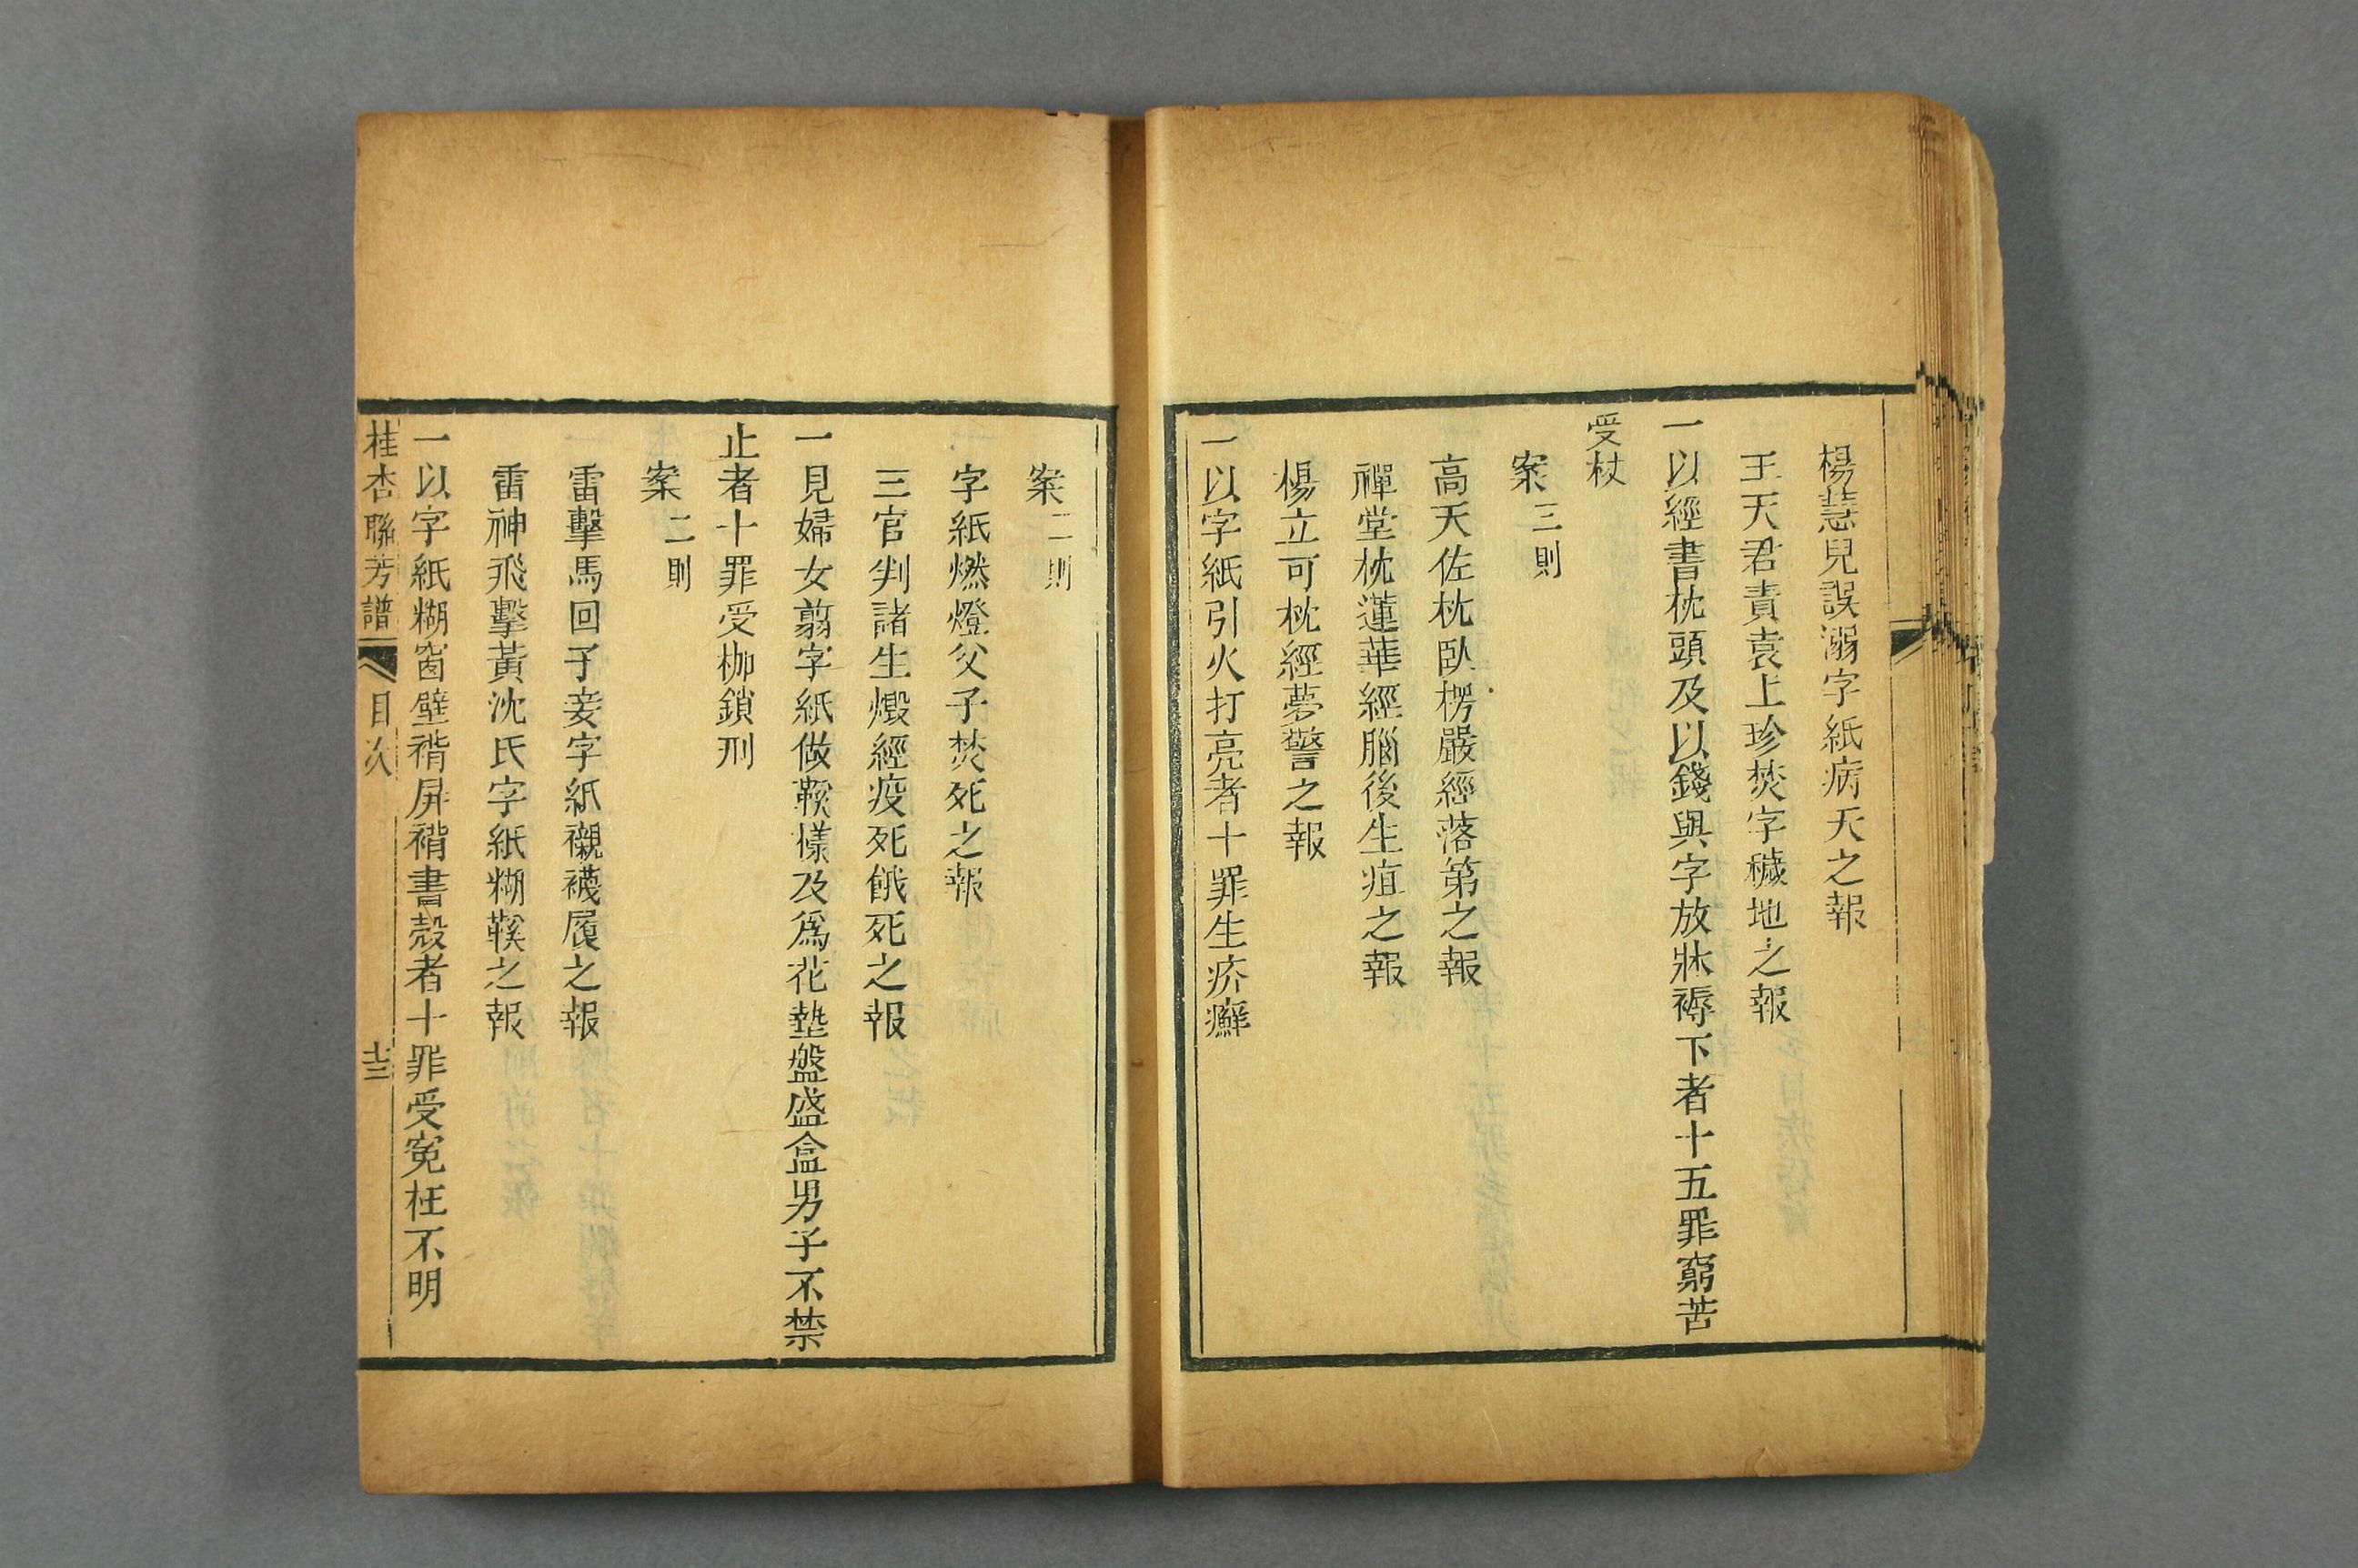 楊慧兒誤溺字紙病夭之報
王天君責袁上珍焚字穢地之報
一以經書枕頭及以錢與字放牀褥下者十五罪窮苦
受杖
案三則
高天佐枕臥楞嚴經落第之報
禪堂枕蓮華經腦後生疽之報
楊立可枕經夢警之報
一以字紙引火打亮者十罪生疥癬
案二則
字紙燃燈父子焚死之報
三官判諸生燬經疫死餓死之報
一見婦女翦字紙做鞵樣及爲花墊盤盛盒男子不禁
止者十罪受枷鎖刑
案二則
雷擊馬回子妾字紙襯襪履之報
雷神飛擊黃沈氏字紙糊鞵之報
一以字紙糊窗壁褙屏褙書殼者十罪受冤枉不明
桂杏聯芳譜 目次 十三